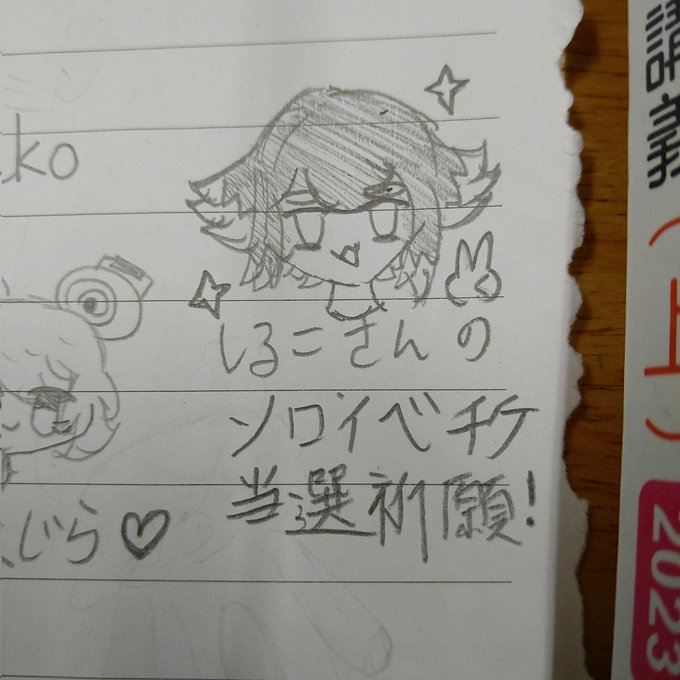 ko
しるこさんの
ソロイベチケ
当選祈願!
じら♡
講義(上)
2023